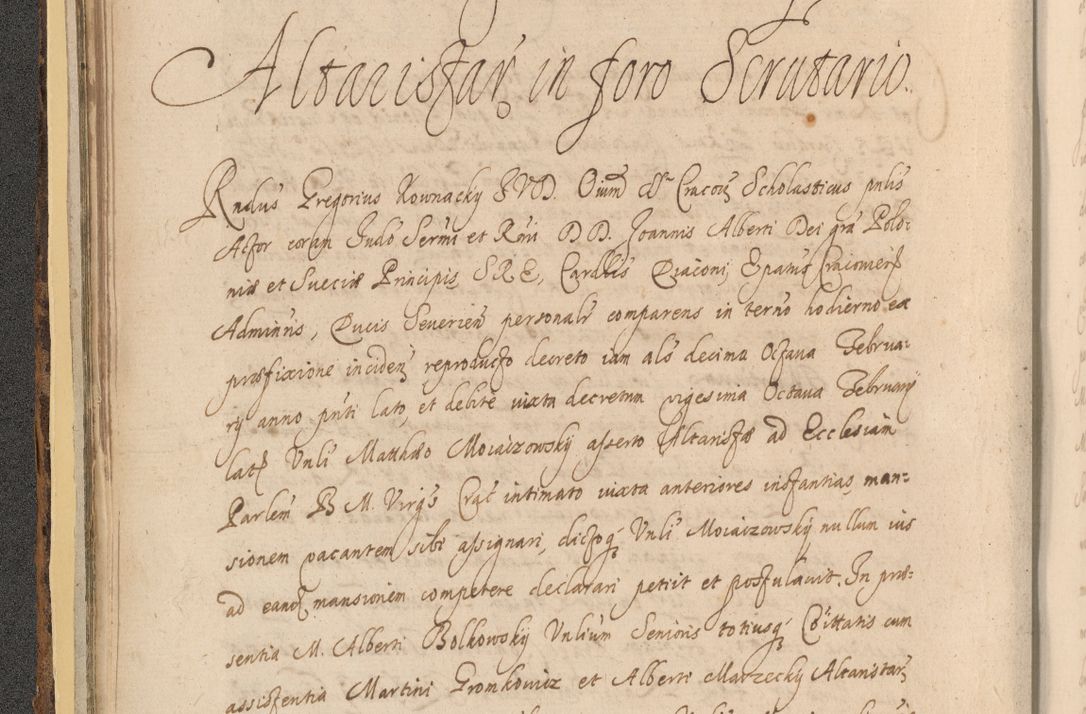 Altaristar in foro Scrutario.
Rndus Gregorius Kownacky J.V.D. Oium SS. Cracov Scholasticus pnlis
Actor coram Indo Sermi et Rmi D D. Joannis Alberti Dei gra Polo:
niæ et Sueciæ Principis, S.R.E, Cardlis Diaconi, Epatus Cracovien
Adminris, Ducis Severien personalr comparens in terno hodierno ex
præfixione inciden reproducto decreto iam als decima Octava Februa:
rij anno pnti lato, et debite iuxta decretum vigesima Octava Februarij
lat Vnli Matthæo Moiaizowsky asserto Altaristæ ad Ecclesiam
Parlem B. M. Virgs Crac intimato iuxta anteriores instantias, man:
sionem vacantem sibi assignari, dictoq Vnli Moiaizowsky nullum ius
ad eand mansionem competere declarari petiit et postulavit. In præ:
sentia M. Alberti Bolkowsky Vnlium Senioris totiusq Cõittatis cum
assistentia Martini Gromkowicz et Alberti Marzecky Altaristar